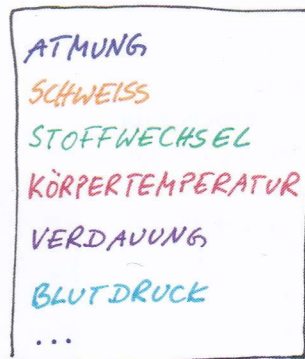 ATMUNG
SCHWEISS
STOFFWECHSEL
KÖRPERTEMPERATUR
VERDAUUNG
BLUTDRUCK
...